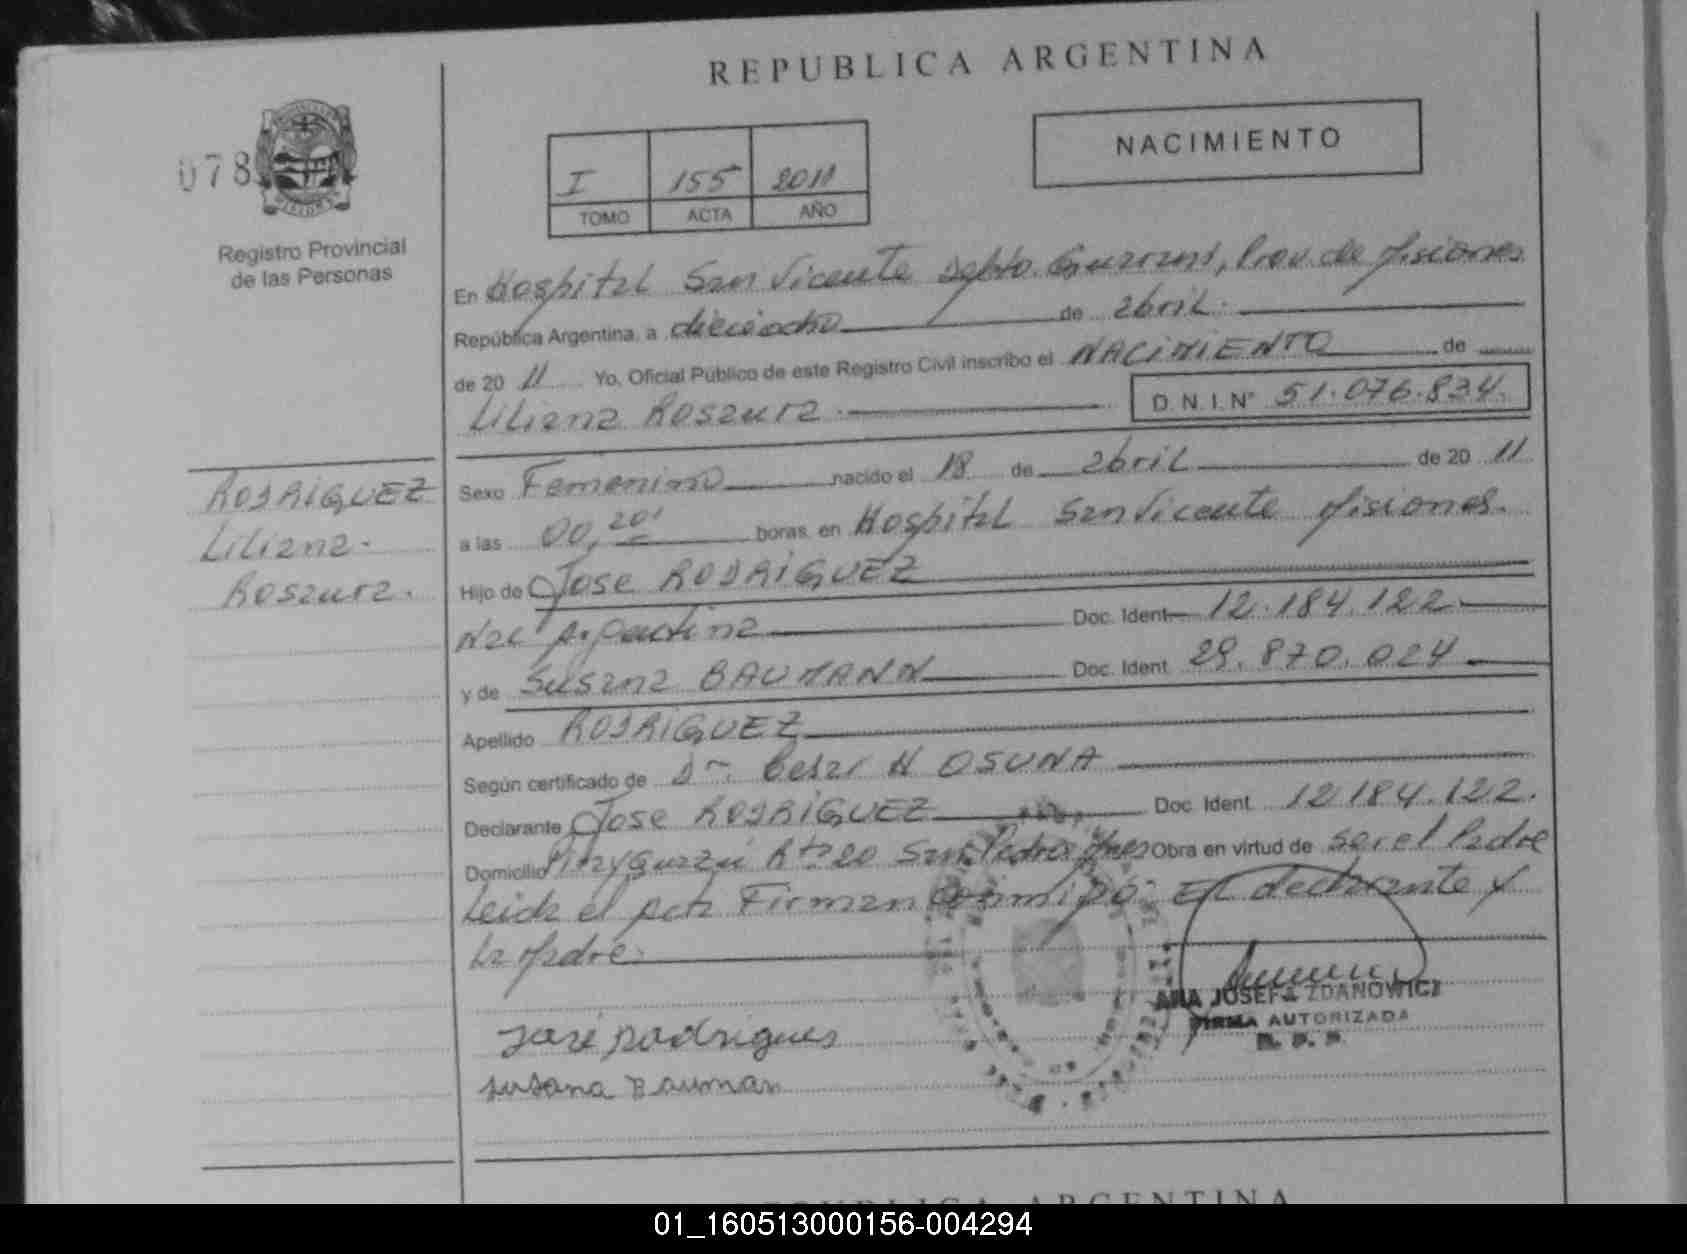 REPUBLICA ARGENTINA
NACIMIENTO
078
I 155 2011
TOMO ACTA AÑO
Registro Provincial
de las Personas
En Hospital San Vicente Depto. Guarani, Prov. de Misiones
República Argentina, a dieciocho de abril.
de 20 11 Yo, Oficial Público de este Registro Civil inscribo el NACIMIENTO de
Liliana Rosaura. D.N.I.N° 51.076.834.
Sexo Femenino nacido el 18 de abril de 20 11
RODRIGUEZ
Liliana.
Rosaura.
a las 00,20' horas, en Hospital San Vicente Misiones.
Hijo de Jose RODRIGUEZ
Nac Argentina Doc. Ident 12.184.122.
y de Susana BAUMANN Doc. Ident. 29.870.024
Apellido RODRIGUEZ
Según certificado de Dr. Cesar H OSUNA
Declarante Jose RODRIGUEZ Doc. Ident. 12.184.122.
Domicilio Pirayguazú Rta 20 San Pedro Mnes Obra en virtud de ser el Padre
Leida el acta Firman conmigo: El declarante y
la Madre.
José Rodrigues
Susana Bauman
ANA JOSEFA ZDANOWICZ
FIRMA AUTORIZADA
R. P. P.
REPUBLICA ARGENTINA
01_160513000156-004294